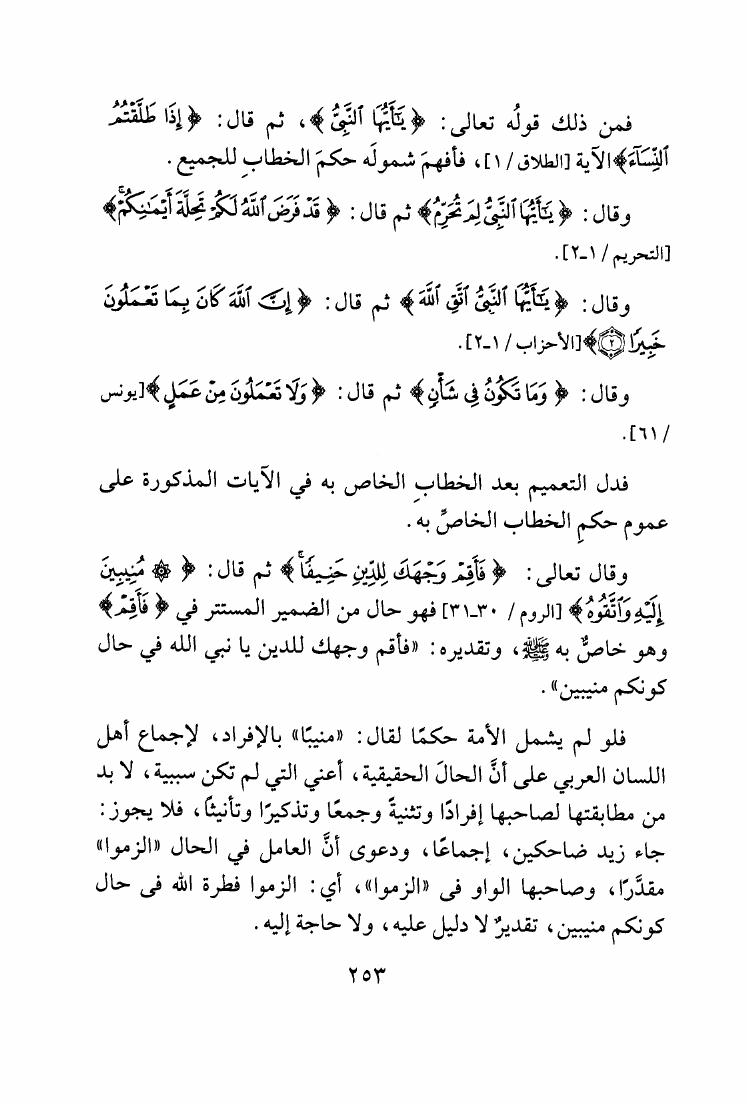 فمن ذلك قولُه تعالى: ﴿يَٰٓأَيُّهَا ٱلنَّبِيُّ﴾، ثم قال: ﴿إِذَا طَلَّقْتُمُ
ٱلنِّسَآءَ﴾ الآية [الطلاق/ ١]، فأفهمَ شمولَه حكمَ الخطابِ للجميع.
وقال: ﴿يَٰٓأَيُّهَا ٱلنَّبِيُّ لِمَ تُحَرِّمُ﴾ ثم قال: ﴿قَدْ فَرَضَ ٱللَّهُ لَكُمْ تَحِلَّةَ أَيْمَٰنِكُمْۚ﴾
[التحريم/ ١ـ٢].
وقال: ﴿يَٰٓأَيُّهَا ٱلنَّبِيُّ ٱتَّقِ ٱللَّهَ﴾ ثم قال: ﴿إِنَّ ٱللَّهَ كَانَ بِمَا تَعْمَلُونَ
خَبِيرًا ۝٢﴾ [الأحزاب/ ١ـ٢].
وقال: ﴿وَمَا تَكُونُ فِى شَأْنٍ﴾ ثم قال: ﴿وَلَا تَعْمَلُونَ مِنْ عَمَلٍ﴾ [يونس
/٦١].
فدل التعميم بعد الخطابِ الخاص به في الآيات المذكورة على
عموم حكمِ الخطاب الخاصِّ به.
وقال تعالى: ﴿فَأَقِمْ وَجْهَكَ لِلدِّينِ حَنِيفًاۚ﴾ ثم قال: ﴿۞ مُنِيبِينَ
إِلَيْهِ وَٱتَّقُوهُ﴾ [الروم/ ٣٠ـ٣١] فهو حال من الضمير المستتر في ﴿فَأَقِمْ﴾
وهو خاصٌّ به ﷺ، وتقديره: «فأقم وجهك للدين يا نبي الله في حال
كونكم منيبين».
فلو لم يشمل الأمة حكمًا لقال: «منيبًا» بالإفراد، لإجماع أهل
اللسان العربي على أنَّ الحالَ الحقيقية، أعني التي لم تكن سببية، لا بد
من مطابقتها لصاحبها إفرادًا وتثنيةً وجمعًا وتذكيرًا وتأنيثًا، فلا يجوز:
جاء زيد ضاحكين، إجماعًا، ودعوى أنَّ العامل في الحال «الزموا»
مقدَّرًا، وصاحبها الواو فى «الزموا»، أي: الزموا فطرة الله فى حال
كونكم منيبين، تقديرٌ لا دليل عليه، ولا حاجة إليه.
٢٥٣